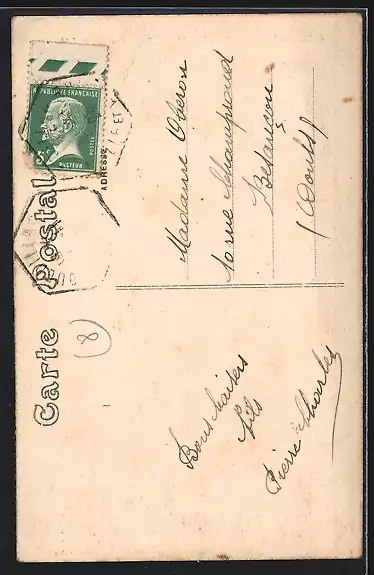 Carte Postale
REPUBLIQUE FRANÇAISE
POSTES
PASTEUR
ADRESSE
Madame Oberon
10 rue Champrond
Besançon
(Doubs)
(8)
Bons baisers
fils
Pierre Charles